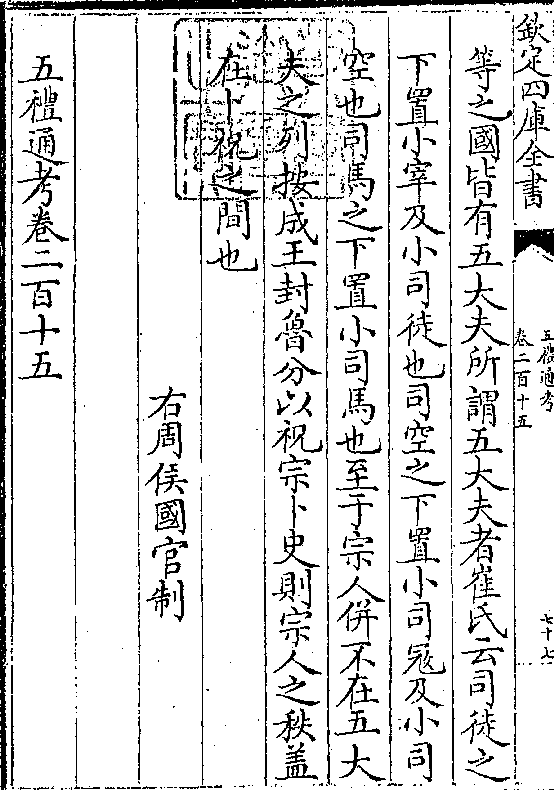 欽定四庫全書
五禮通考
卷二百十五
七十七
等之國皆有五大夫所謂五大夫者崔氏云司徒之
下置小宰及小司徒也司空之下置小司寇及小司
空也司馬之下置小司馬也至于宗人併不在五大
夫之列按成王封魯分以祝宗卜史則宗人之秩蓋
在卜祝之間也
右周侯國官制
五禮通考卷二百十五